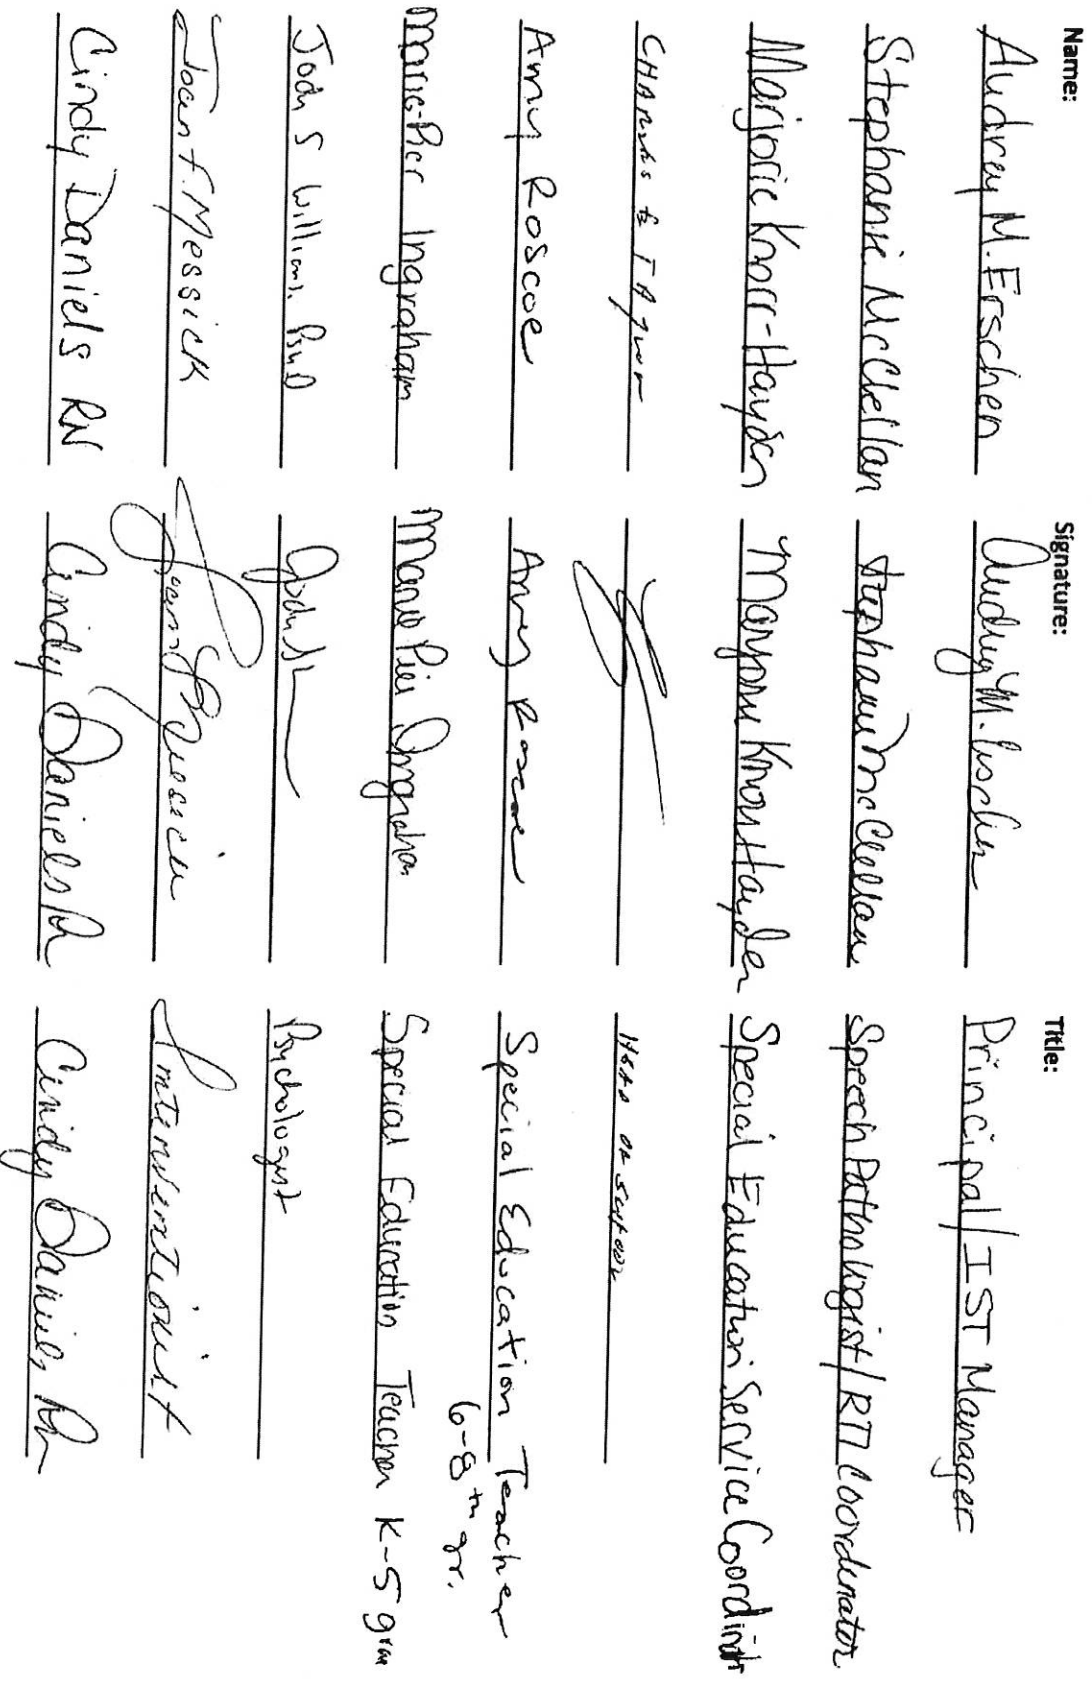 Name: Signature: Title:
Audrey M. Erschen Audrey M. Erschen Principal/IST Manager
Stephanie McClellan Stephanie McClellan Speech Pathologist/RTI Coordinator
Marjorie Knorr-Hayden Marjorie Knorr Hayden Special Education Service Coordinatr
Head of School
Amy Roscoe Amy Roscoe Special Education Teacher
6-8th gr.
Marie-Pier Ingraham Marie Pier Ingraham Special Education Teacher K-5 grade
Jody S Psychologist
Joan F. Messick Interventionist
Cindy Daniels RN Cindy Daniels Rn Cindy Daniels Rn